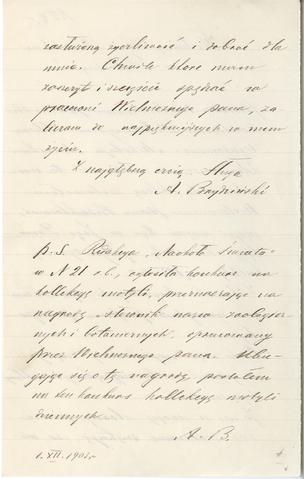 życzliwość i dobroć dla
mnie. Chwile które mam
zaszczyt i szczęście spędzać w
pracowni Wielmożnego pana, za-
liczam do najpiękniejszych w mem
życiu.
Z najgłębszą czcią. Sługa
A.
P.S. Redakcya „Naokoło Świata"
w N 21 r.b., ogłosiła konkurs na
kollekcyę motyli, przeznaczając na
nagrodę „słownik nazw zoologicz-
nych i botanicznych, opracowany
przez Wielmożnego pana. Ubie-
gając się o tę nagrodę posłałem
na ten konkurs kollekcyę motyli
dziennych.
A. B.
1. XII. 1903 r.